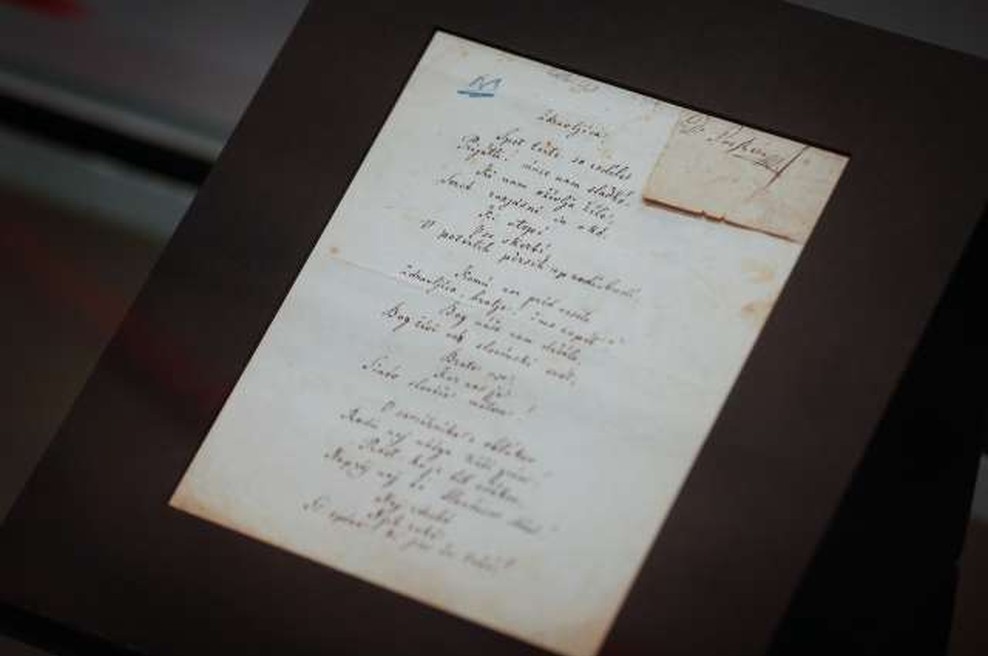 Zdravljica.
Spet terte so rodile
Prijatli, vince nam sladkó,
Ki nam oživlja žile,
Serce razjasni in oko,
Ki utopi
Vse skerbi
V potertih persih up
Komú nar pred veselo
Zdravljico, bratje, č'mo zapet'?
Bog našo nam deželo,
Bog živi ves slovenski svet,
Brate vse,
Kar nas je
Sinov sloveče
V sovražnike 'z oblakov
Rodú naj naš'ga
Prost, ko je bil očakov,
Naprej naj bo Slovencov dom;
Naj zdrobé
Njih roké
Si spone, ki jih še težé!